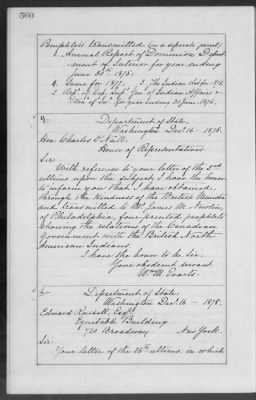 560
Pamphlets transmitted (in a separate parcel)
1. Annual Report of Dominion Depart-
ment of Interior for year ending
June 30th 1878.
2. Same for 1877. 3. The Indian Act for 1876.
Department of State,
Washington Decr. 16 - 1878.
Hon. Charles O'Neill.
House of Representatives.
Sir:
With reference to your letter of the 2nd
ultimo upon the subject, I have the honor
to inform you that I have obtained,
through the kindness of the British Minister
and transmitted to Mr. James M.
of Philadelphia, four printed pamphlets
showing the relations of the Canadian
Government with the British North
American Indians.
I have the honor to be, Sir,
Your obedient servant
Wm. M. Evarts.
Department of State
Washington Decr. 16 - 1878.
Edward Russell, Esqr.
Equitable Building
120 Broadway. New York.
Sir:
Your letter of the 26th ultimo, in which